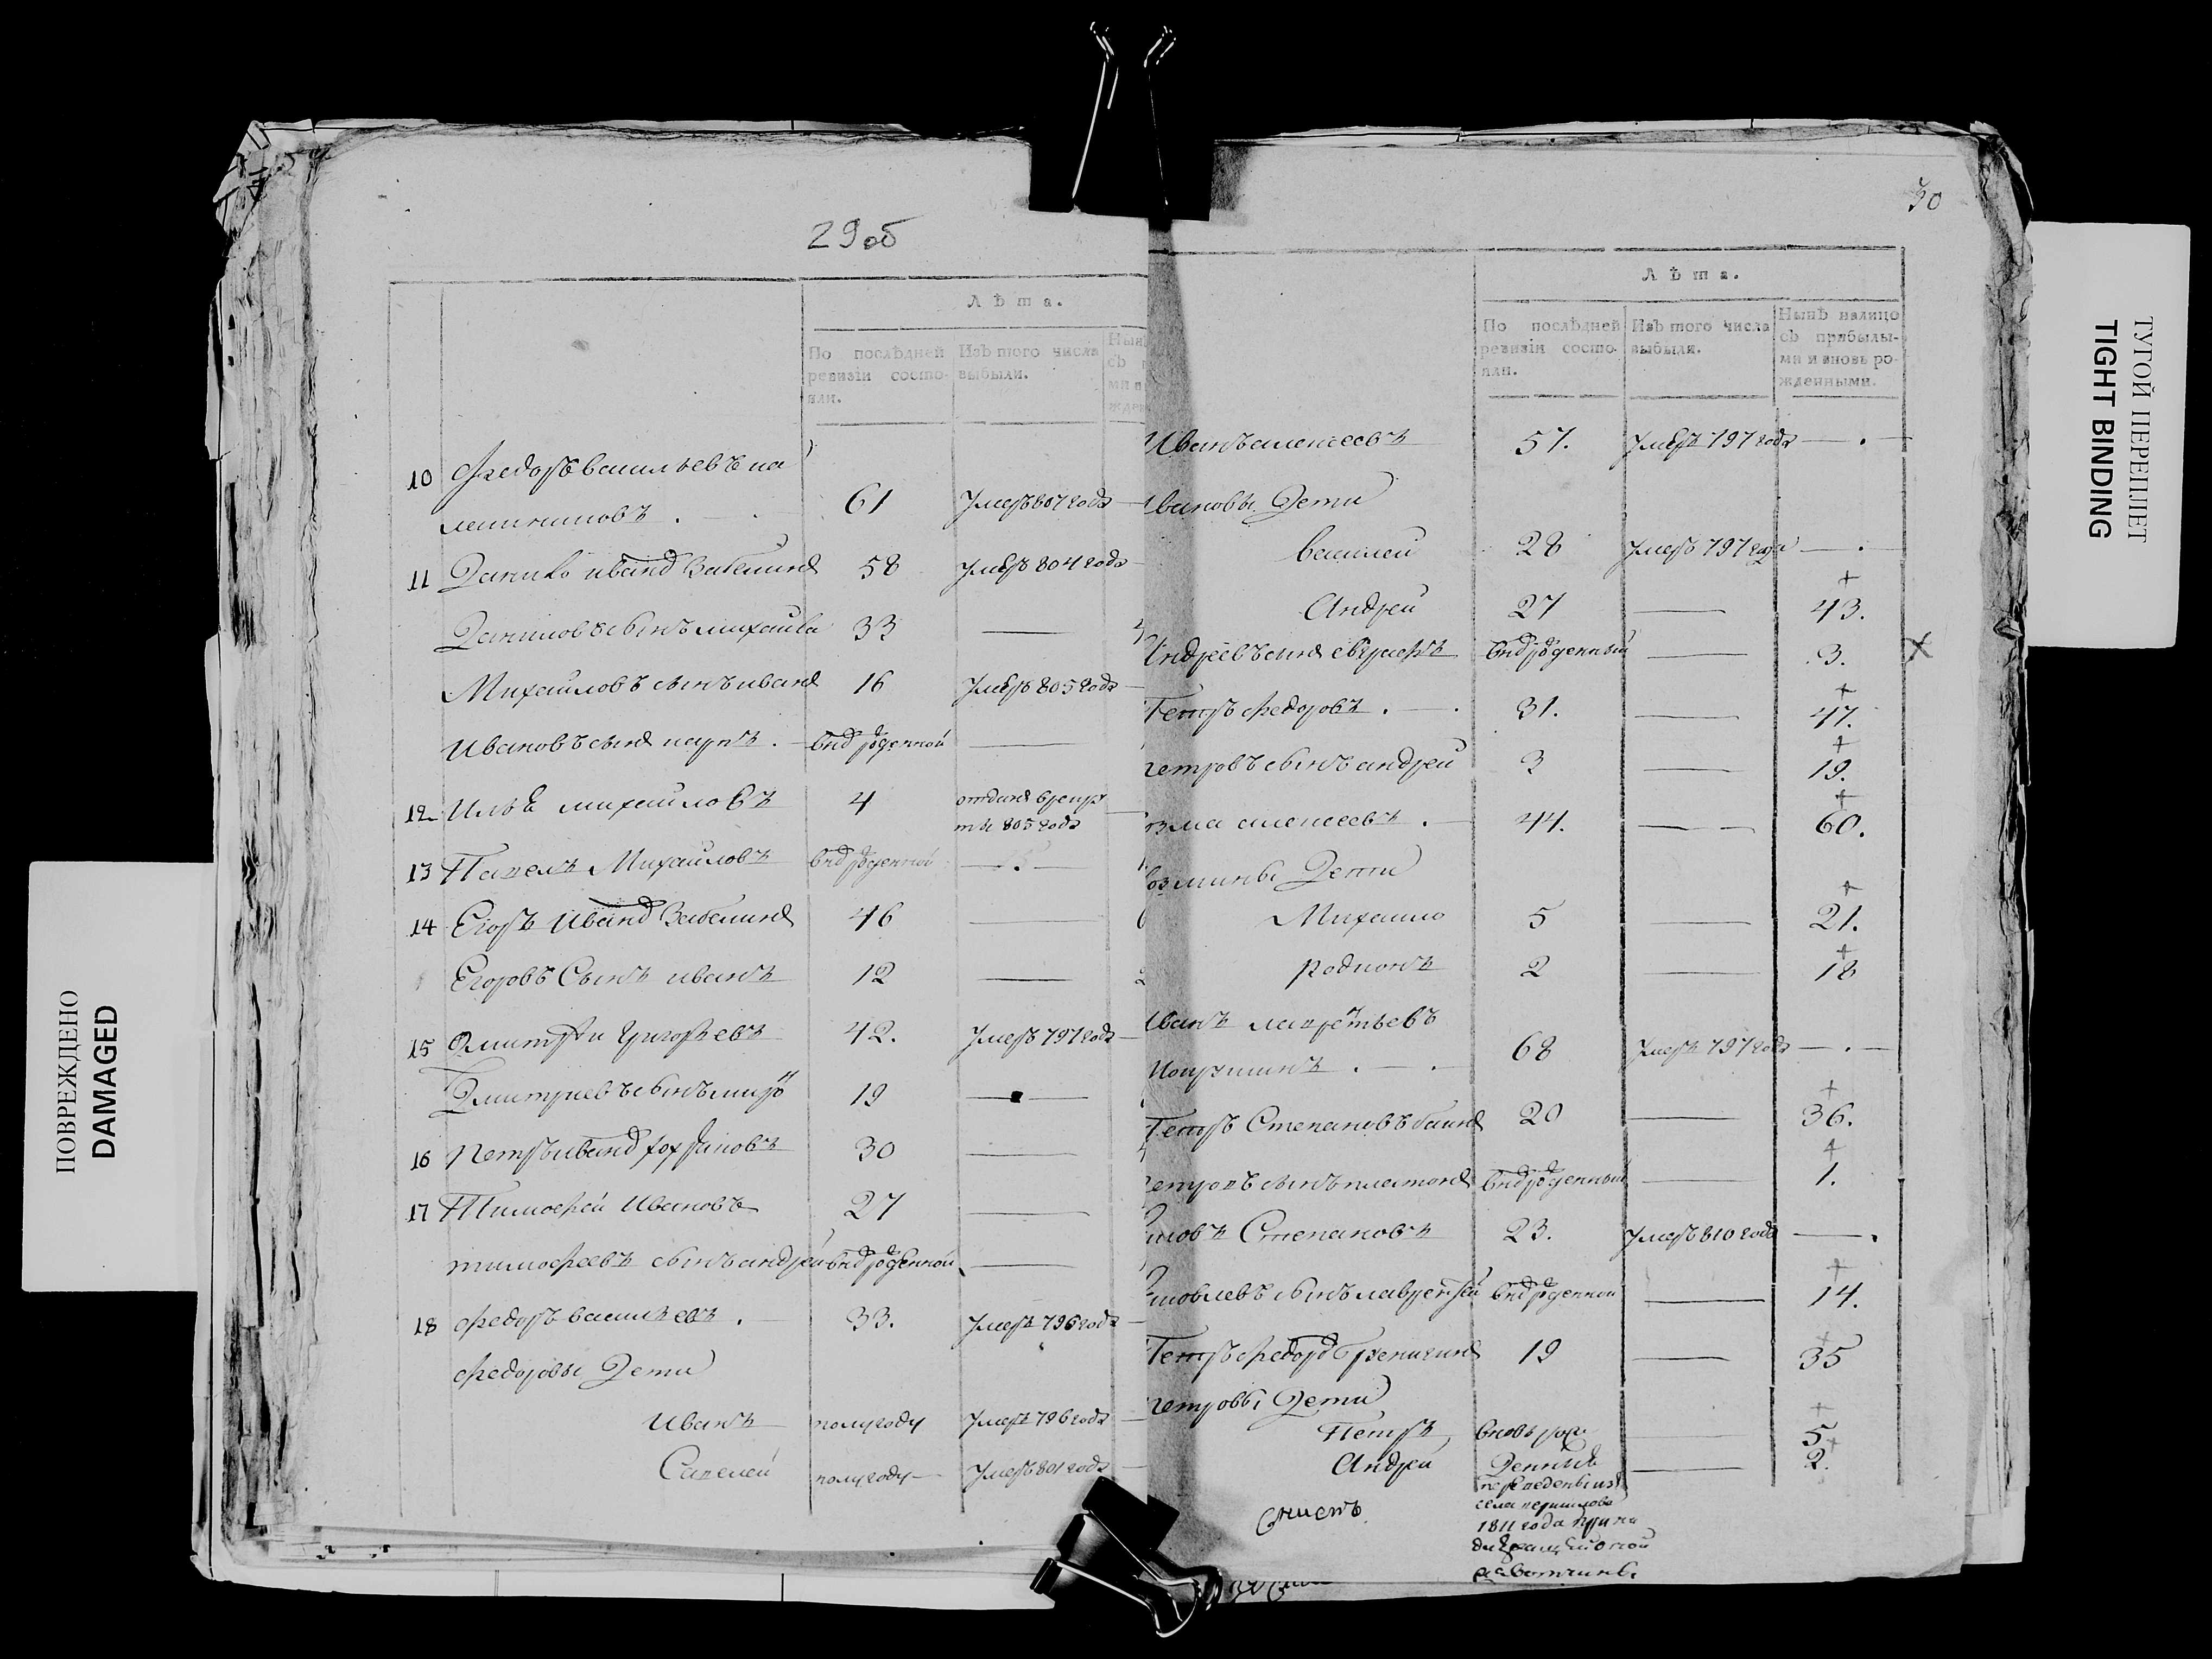 29об
Лѣта.
По послѣдней ревизіи состояли.
Изъ того числа выбыли.
10 Федоръ васильевъ ка
лашниковъ . 61 Умеръ 807 года
11 Данило иванъ Забелинъ 58 Умеръ 804 года
Даниловъ сынъ михайла 33 —
Михайловъ сынъ иванъ 16 Умеръ 805 года
Ивановъ сынъ карпъ . —
12 Илья михайловъ 4 отданъ врекру
ты 805 года
13 Павелъ Михайловъ
14 Егоръ Иванъ Забелинъ 46 —
Егоровъ Сынъ иванъ 12 —
15 Дмитри Григорьевъ 42. Умеръ 797 года
Дмитриевъ сынъ 19 —
16 Петръ иванъ 30 —
17 Тимофей Ивановъ 27 —
тимофеевъ сынъ андрей —
18 Федоръ васильевъ . 33. Умеръ 796 года
Федоровы Дети
Иванъ полугоду Умеръ 796 года
Савелей полугоду Умеръ 801 года
30
Лѣта.
По послѣдней ревизіи состояли.
Изъ того числа выбыли.
Нынѣ налицо съ прибылыми и вновь рожденными.
Иванъ алексеевъ 57. Умеръ 797 года — . —
вановы Дети
василей 28 Умеръ 797 года — . —
Андрей 27 — 43.
Андреевъ сынъ — 3. X
Петръ федоровъ . — . 31. — 47.
петровъ сынъ андрей 3 — 19.
озма алексеевъ . — 44. — 60.
озмины Дети
Михайло 5 — 21.
родионъ 2 — 18
Иванъ
68 Умеръ 797 года — . —
Петръ Степановъ 20 — 36.
етровъ сынъ платонъ — 1.
ковъ Степановъ 23. Умеръ 810 года — .
яковлевъ сынъ лаврентей — 14.
Петръ федоръ 19 — 35
петровы Дети
Петръ вновь рож — 5
Андрей Денные — 2.
переведены изъ
села
1811 года
вотчины
ТУГОЙ ПЕРЕПЛЕТ
TIGHT BINDING
ПОВРЕЖДЕНО
DAMAGED